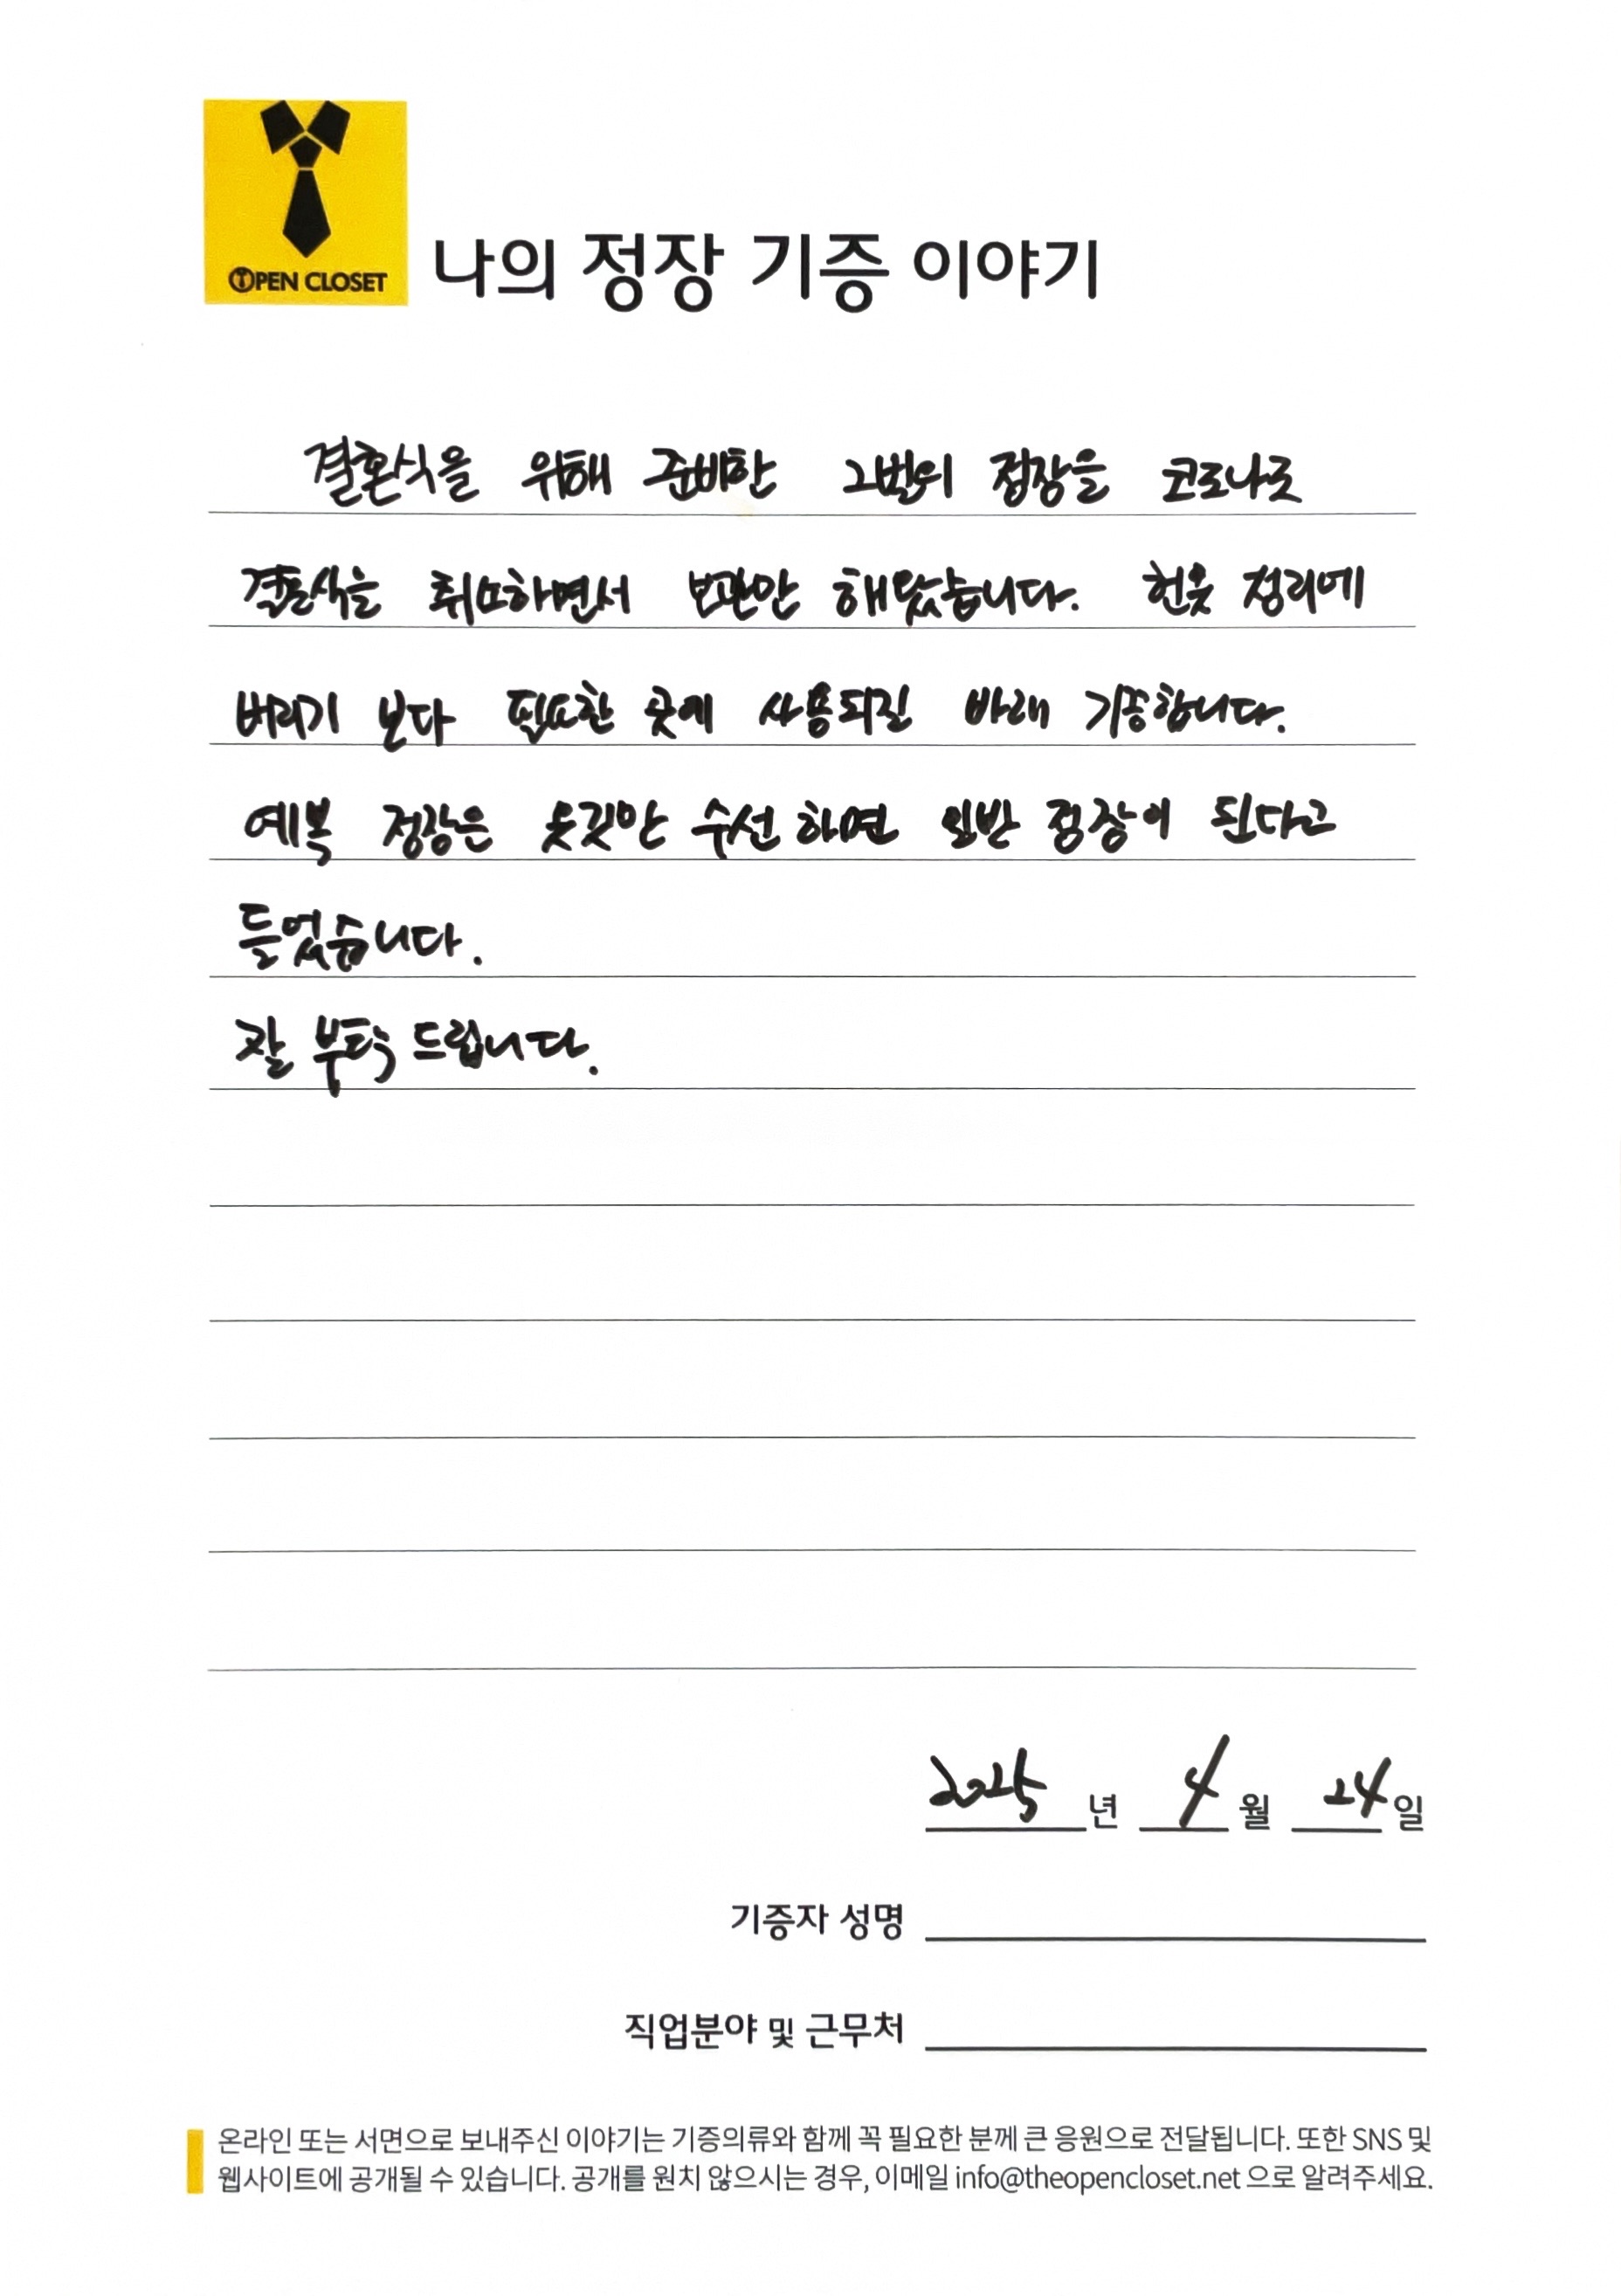 OPEN CLOSET
나의 정장 기증 이야기
결혼식을 위해 준비한 2벌의 정장을 코로나로
결혼식을 취소하면서 보관만 해왔습니다. 헌옷 정리에
버리기 보다 필요한 곳에 사용되길 바래 기증합니다.
예복 정장은 옷깃만 수선하면 일반 정장이 된다고
들었습니다.
잘 부탁드립니다.
2025 년 4 월 24 일
기증자 성명
직업분야 및 근무처
온라인 또는 서면으로 보내주신 이야기는 기증의류와 함께 꼭 필요한 분께 큰 응원으로 전달됩니다. 또한 SNS 및
웹사이트에 공개될 수 있습니다. 공개를 원치 않으시는 경우, 이메일 info@theopencloset.net 으로 알려주세요.